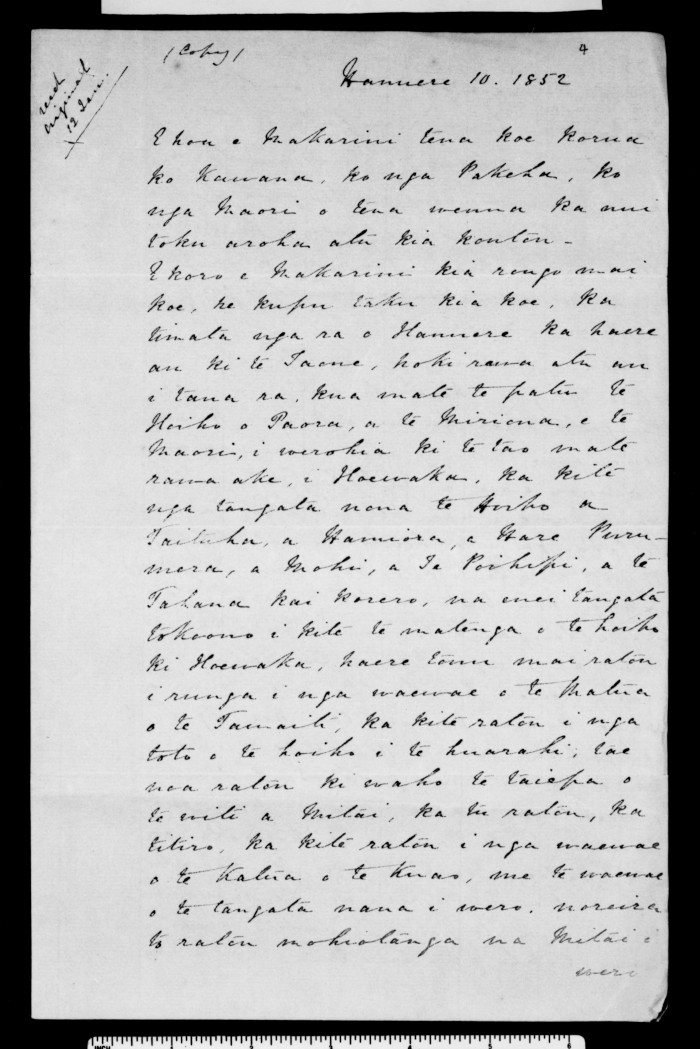 (Copy)
4
recd
original
12 Jan.
Hanuere 10. 1852
E hoa e Makarini tena koe korua
ko Kawana, ko nga Pakeha, ko
nga Maori o tena wenua ka nui
toku aroha atu kia koutou -
E koro e Makarini kia rongo mai
koe, he kupu taku kia koe, ka
timata nga ra o Hanuere ka haere
au ki te Taone, hoki rawa atu au
i tana ra, kua mate te patu te
Hoiho o Paora, a te Miriona, e te
Maori, i werohia ki te tao mate
rawa ake, i Hoewaka, ka kite
nga tangata nona te Hoiho a
Taituha, a Hamiora, a Hare Puru-
mera, a Mohi, a Te Poihipi, a te
Tahana kai korero, na enei tangata
tokoono i kite te matenga o te hoiho
ki Hoewaka, haere tonu mai ratou
i runga i nga waewae o te Matua
o te Tamaiti, ka kite ratou i nga
toto o te hoiho i te huarahi, tae
noa ratou ki waho te taiepa o
te witi a Mitai, ka tu ratou, ka
titiro, ka kite ratou i nga waewae
o te Katua o te Kuao, me te waewae
o te tangata nana i wero, noreira
to ratou mohiotanga na Mitai i
wero